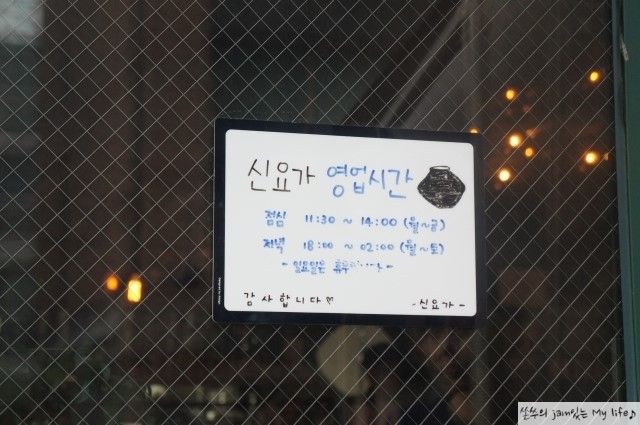 신요가 영업시간
점심 11:30 ~ 14:00 (월~금)
저녁 18:00 ~ 02:00 (월~토)
- 일요일은
감사합니다♡ -신요가-
쏜쑤의 jain있는 My life♪